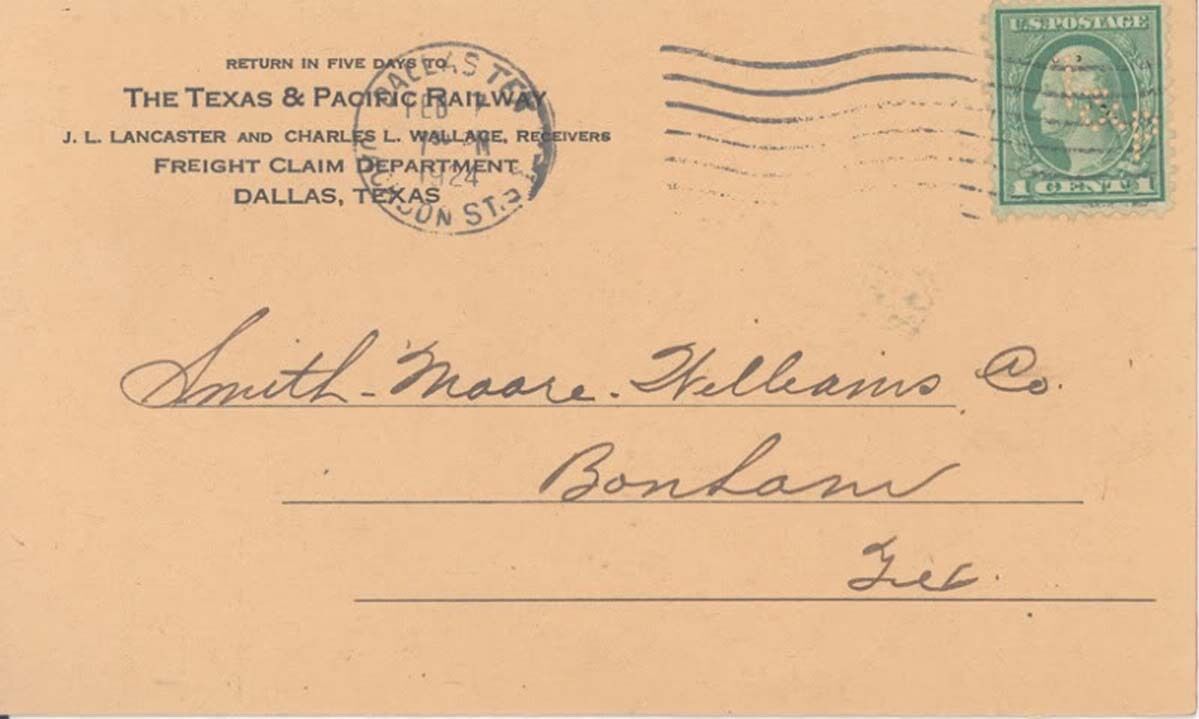 RETURN IN FIVE DAYS TO
THE TEXAS & PACIFIC RAILWAY
J. L. LANCASTER AND CHARLES L. WALLACE, RECEIVERS
FREIGHT CLAIM DEPARTMENT
DALLAS, TEXAS
DALLAS TEX
FEB
1924
ST.
U.S. POSTAGE
1 CENT 1
Smith-Moore-Williams Co.
Bonham
Tex.